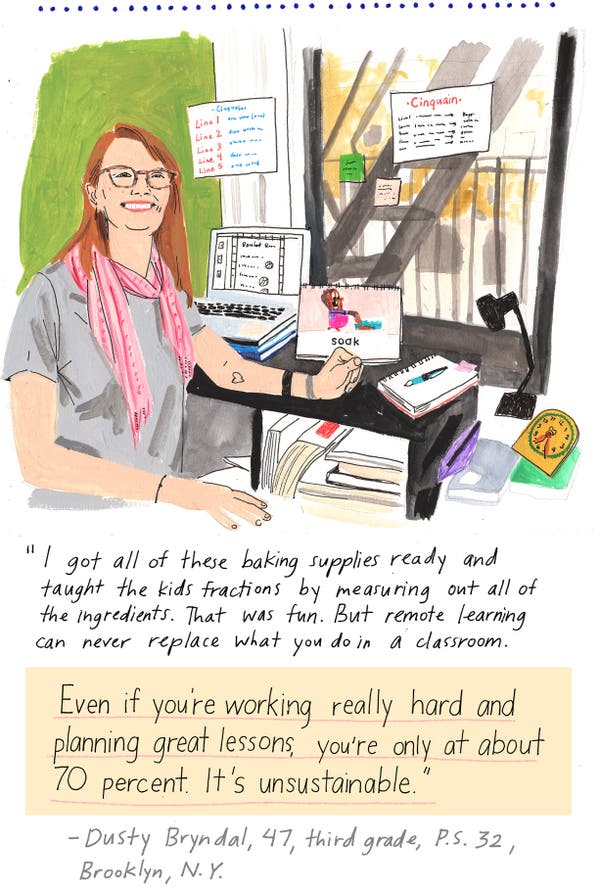 ·Cinquain·
Line 1
Line 2
Line 3
Line 4
Line 5
·Cinquain·
soak
"I got all of these baking supplies ready and
taught the kids fractions by measuring out all of
the ingredients. That was fun. But remote learning
can never replace what you do in a classroom.
Even if you're working really hard and
planning great lessons, you're only at about
70 percent. It's unsustainable."
– Dusty Bryndal, 47, third grade, P.S. 32,
Brooklyn, N.Y.